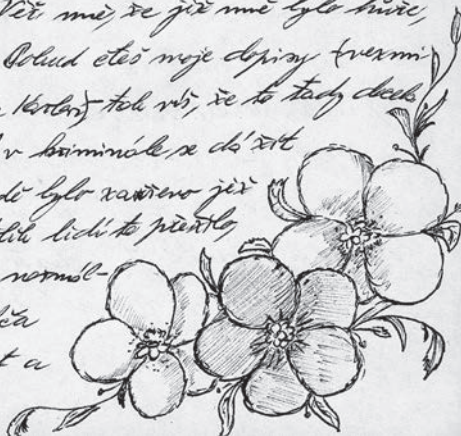 Věř mně, že již mně bylo hůře,
Pokud čteš moje dopisy (vezmi
tak víš, že to tady docela
v kriminále se dá žít
bylo zavřeno již
lidí to přežilo,
normál-
t a